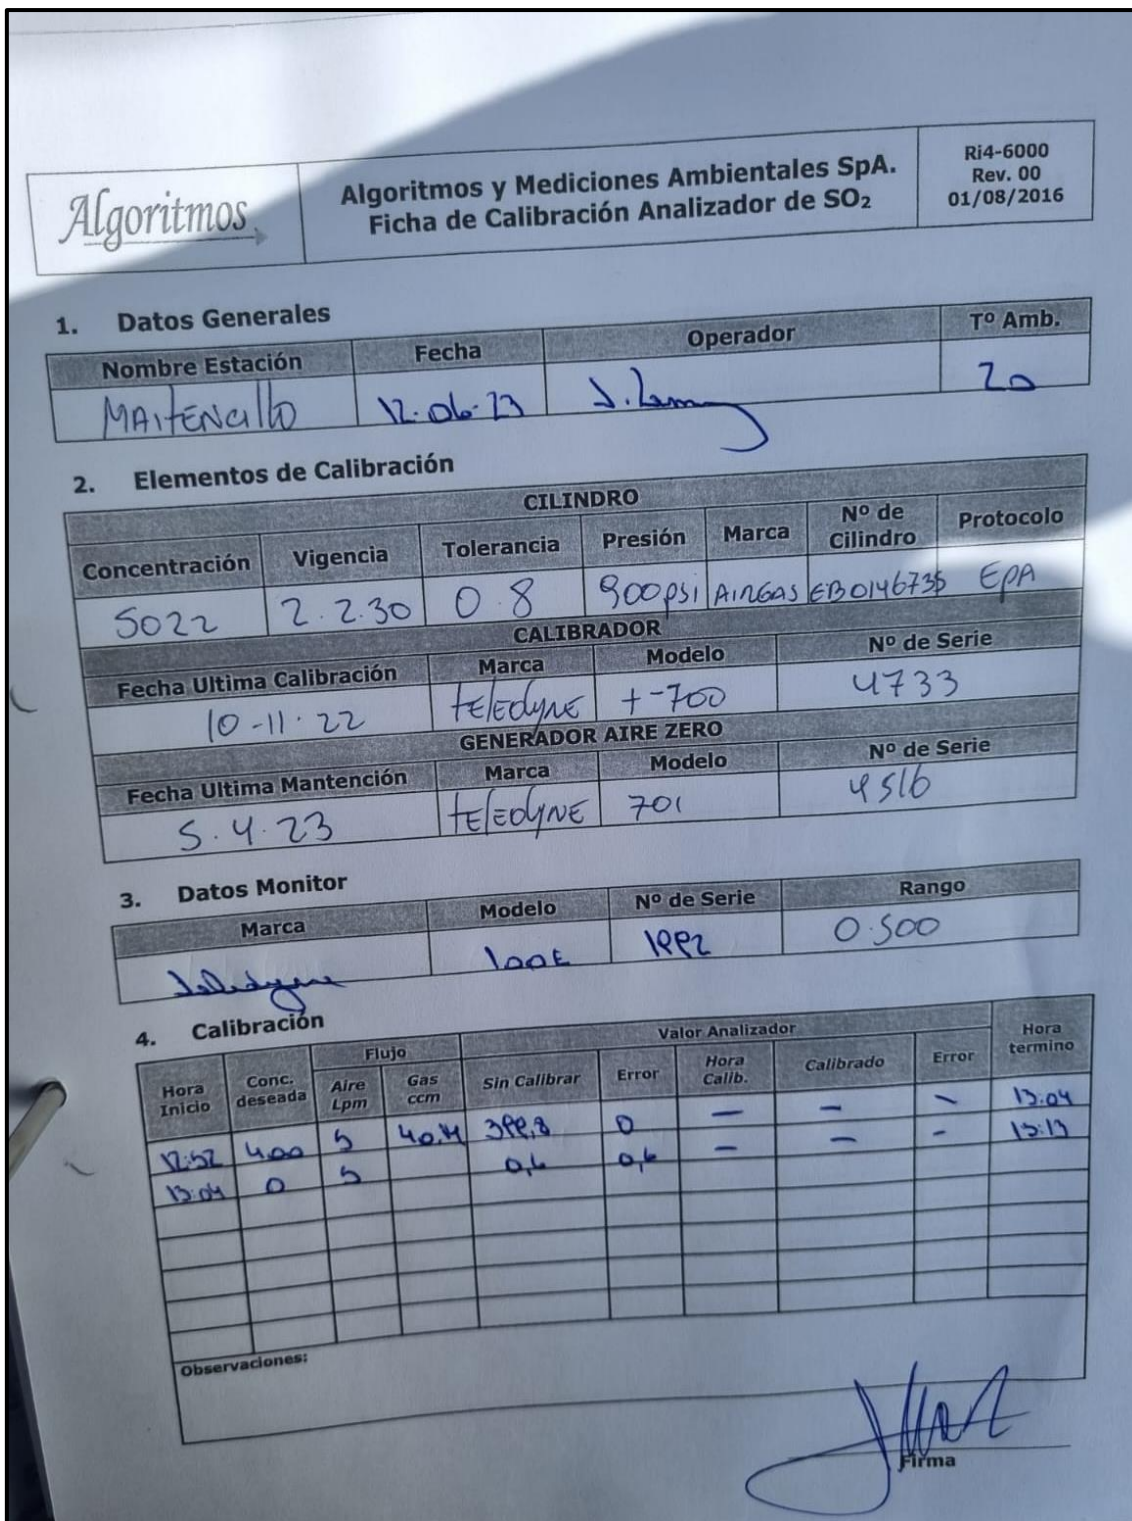 Algoritmos
Algoritmos y Mediciones Ambientales SpA.
Ficha de Calibración Analizador de SO₂
Ri4-6000
Rev. 00
01/08/2016
1. Datos Generales
Nombre Estación Fecha Operador Tº Amb.
MAITENCILLO 12.06.23 20
2. Elementos de Calibración
CILINDRO
Concentración Vigencia Tolerancia Presión Marca Nº de Cilindro Protocolo
5022 2.2.30 0.8 900psi AIRGAS EPA
CALIBRADOR
Fecha Ultima Calibración Marca Modelo Nº de Serie
10-11.22 tELEDYNE t-700 4733
GENERADOR AIRE ZERO
Fecha Ultima Mantención Marca Modelo Nº de Serie
5.4.23 tELEDYNE 701 4516
3. Datos Monitor
Marca Modelo Nº de Serie Rango
Teledyne 100E 0.500
4. Calibración
Hora Inicio Conc. deseada Flujo Valor Analizador Hora termino
Aire Lpm Gas ccm Sin Calibrar Error Hora Calib. Calibrado Error
12:52 400 5 399,8 0 — — — 13:04
13:04 0 5 0,6 0,6 — — - 13:13
Observaciones:
Firma